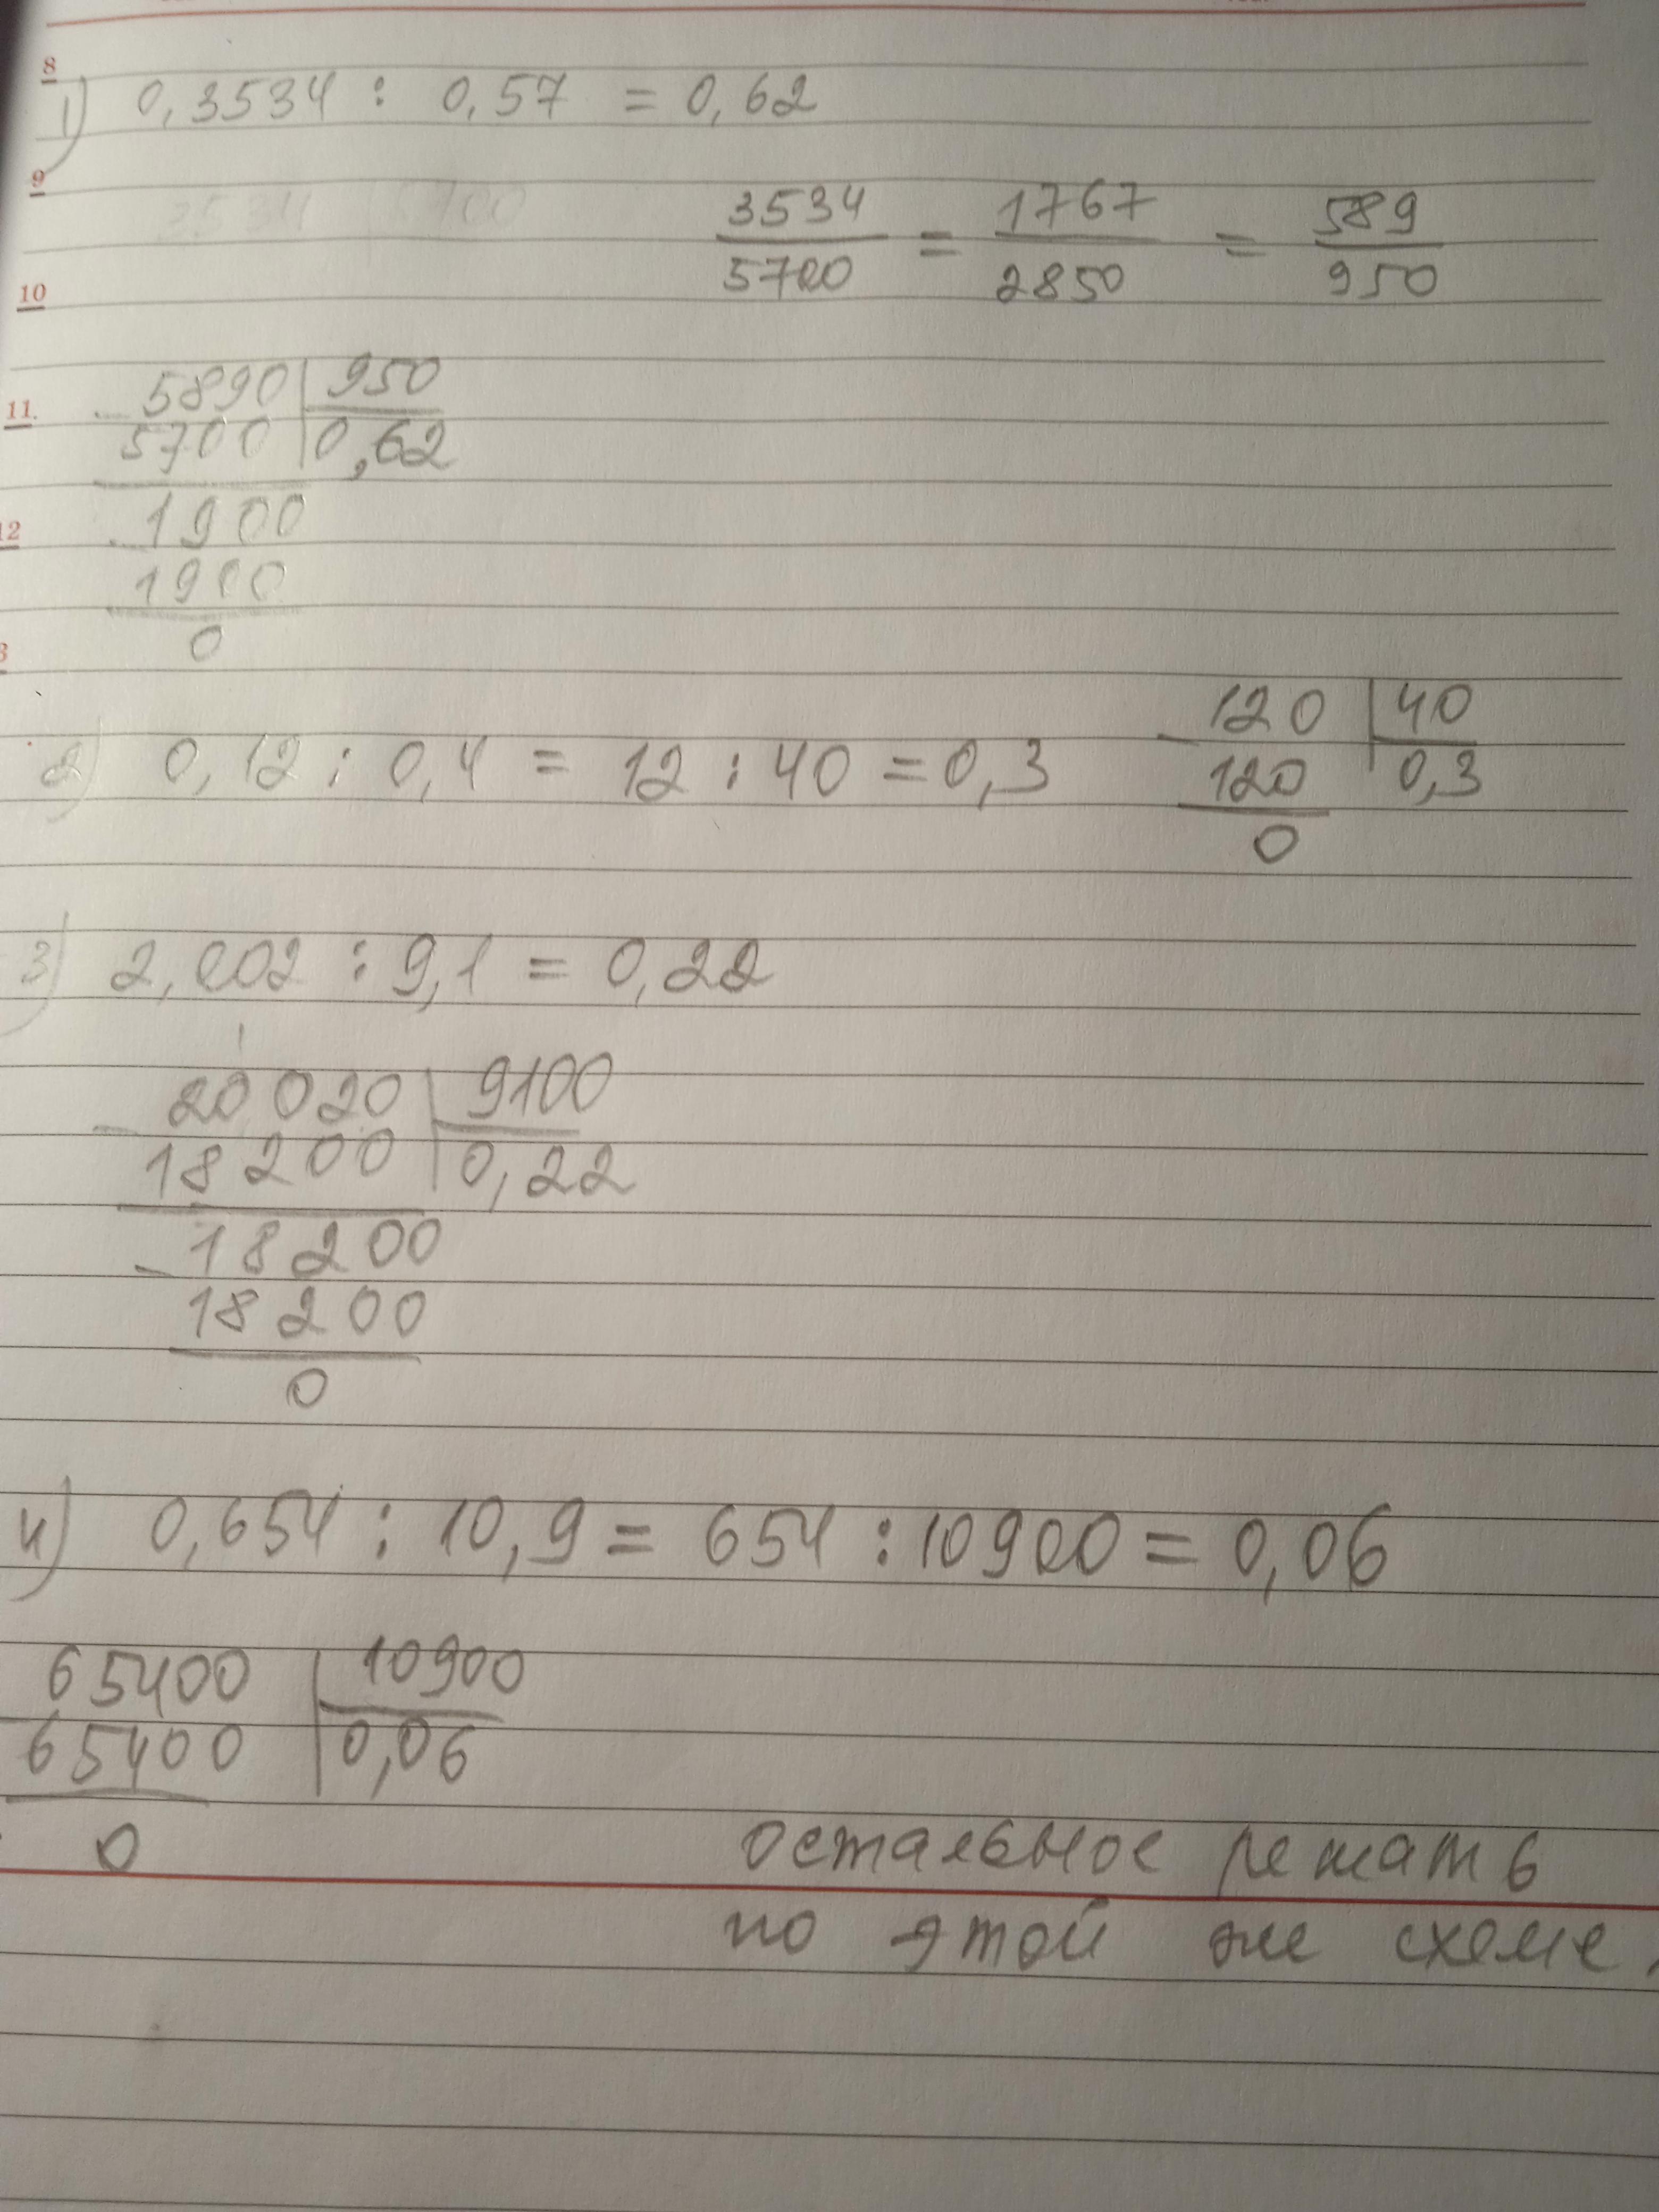 8
1) 0,3534 : 0,57 = 0,62
9
3534 5700
3534/5700 = 1767/2850 = 589/950
10
5890 | 950
11.
- 5700 | 0,62
1900
12
- 1900
0
2) 0,12 : 0,4 = 12 : 40 = 0,3
120 | 40
- 120 | 0,3
0
3) 2,002 : 9,1 = 0,22
20020 | 9100
- 18200 | 0,22
18200
- 18200
0
4) 0,654 : 10,9 = 654 : 10900 = 0,06
65400 | 10900
65400 | 0,06
0
остальное решать
по этой же схеме.